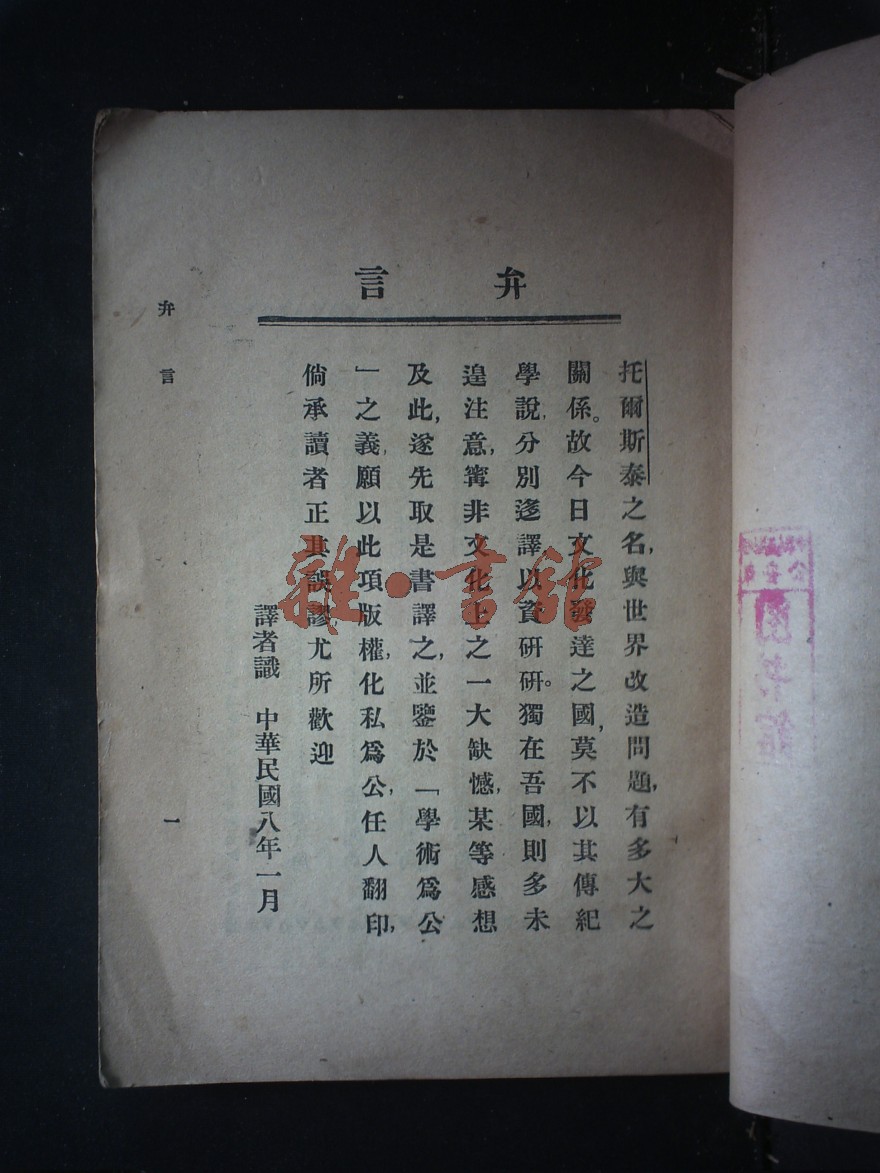 弁言
托爾斯泰之名，與世界改造問題，有多大之
關係。故今日文化發達之國，莫不以其傳紀
學說，分別迻譯以資研研。獨在吾國，則多未
遑注意，寗非文化上之一大缺憾，某等感想
及此，遂先取是書譯之，並鑒於「學術爲公
」之義，願以此項版權，化私爲公，任人翻印，
倘承讀者正其誤謬，尤所歡迎
譯者識　中華民國八年一月
弁言
一
雜·書館